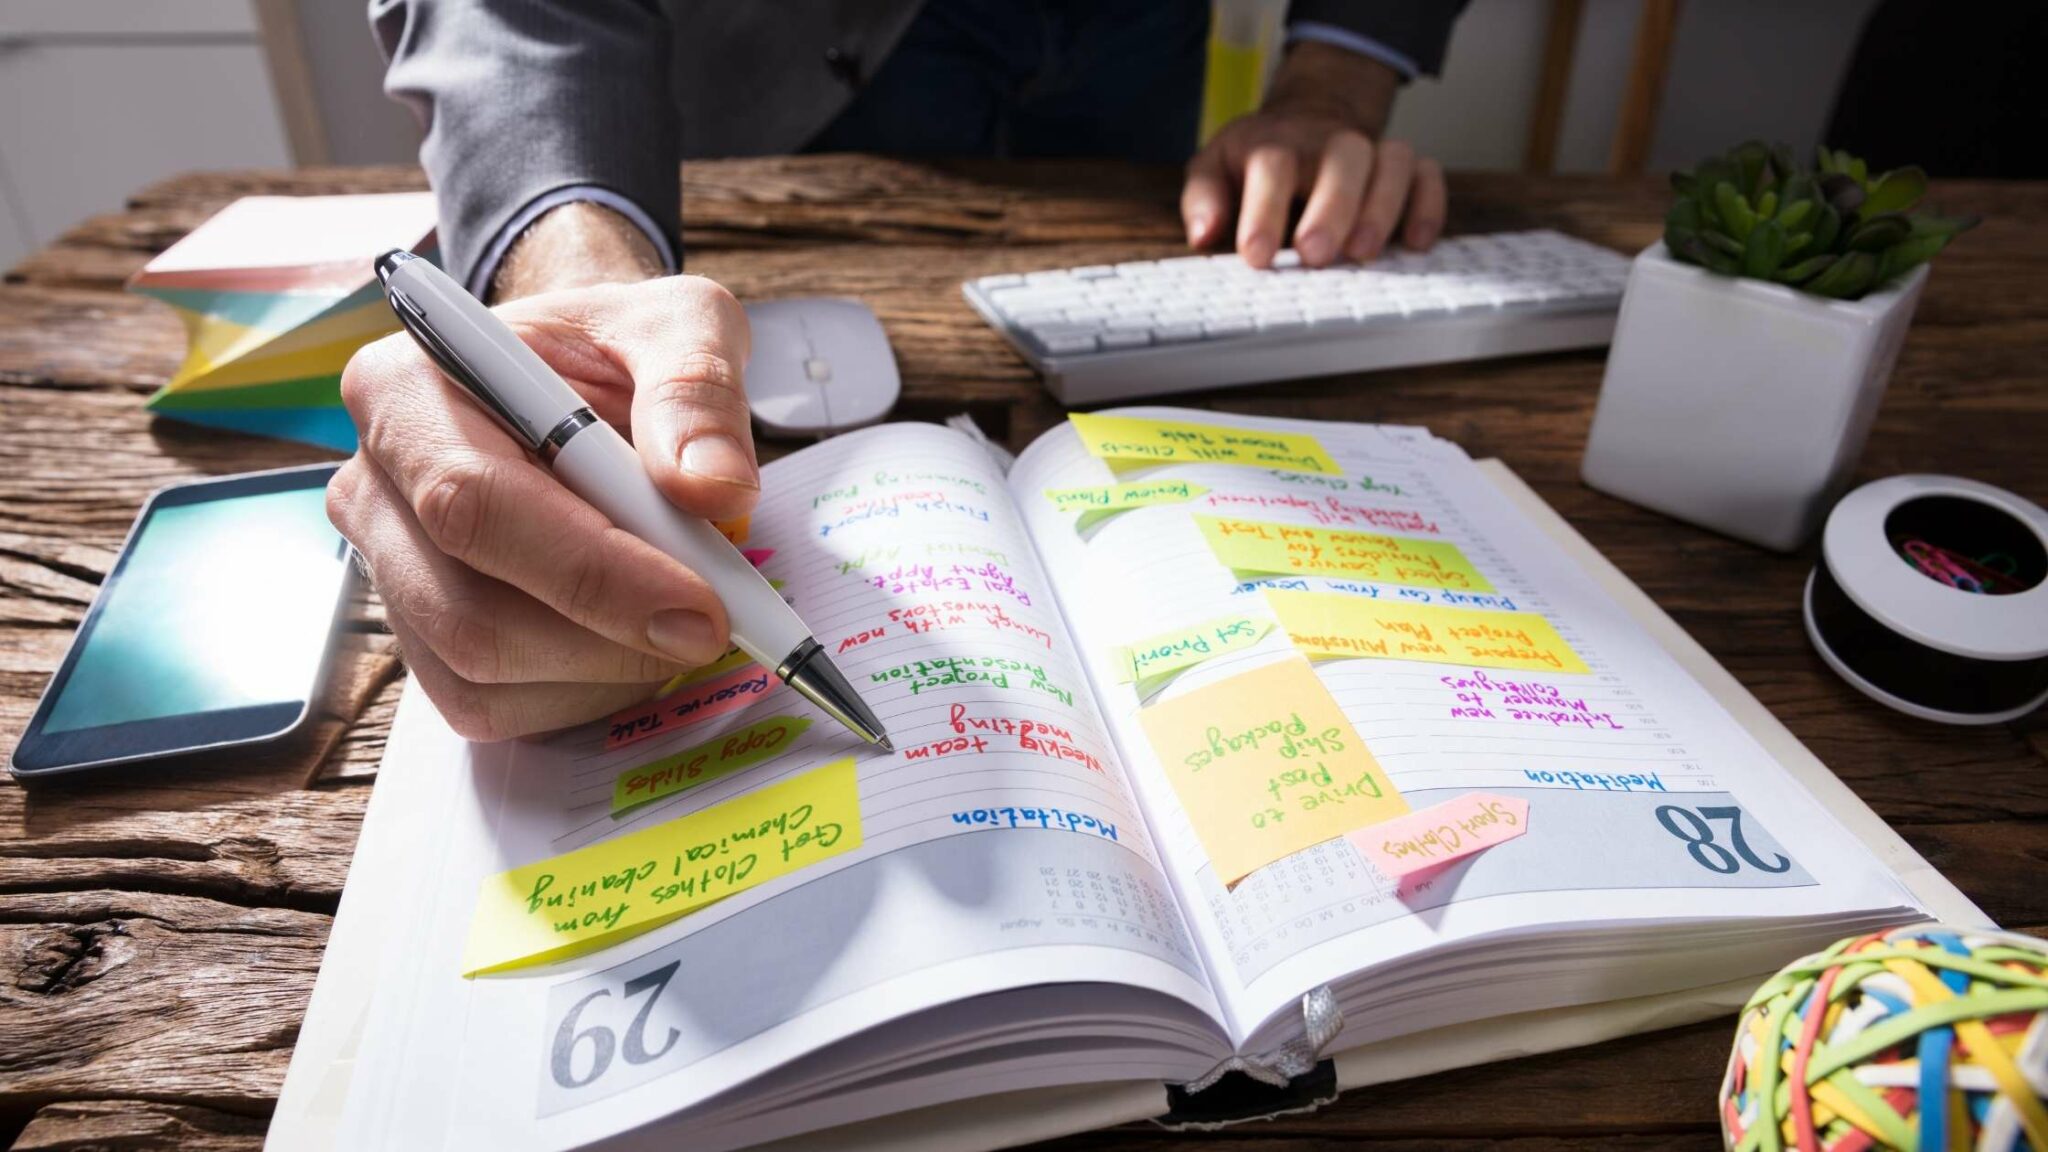 28
Meditation
Introduce new
Manger to
Colleagues
Prepare new Milestone
Project Plan
Pickup Car from Dealer
Select Service
Providers for
Review and Test
Meeting with
Marketing Department
Yoga Classes
Dinner with Clients
Reserve Table
Sport Clothes
Drive to
Post
Ship
Packages
Set Priorit
Review Plans
29
Meditation
Weekly team
meeting
New Project
Presentation
Lunch with new
Investors
Real Estate
Agent Appt.
Dentist Appt.
Finish Report
Deadline
Swimming Pool
Get Clothes from
Chemical cleaning
Copy Slides
Reserve Table
August